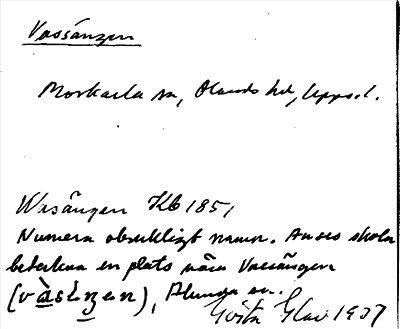 Vassängen
Morkarla sn, Olands hd, Upps.l.
Wasängen Kb 1851
Numera obrukligt namn. Anses skola
beteckna en plats nära Vassängen
(vàsεŋen), Alunda sn.
Gösta Elav 1937